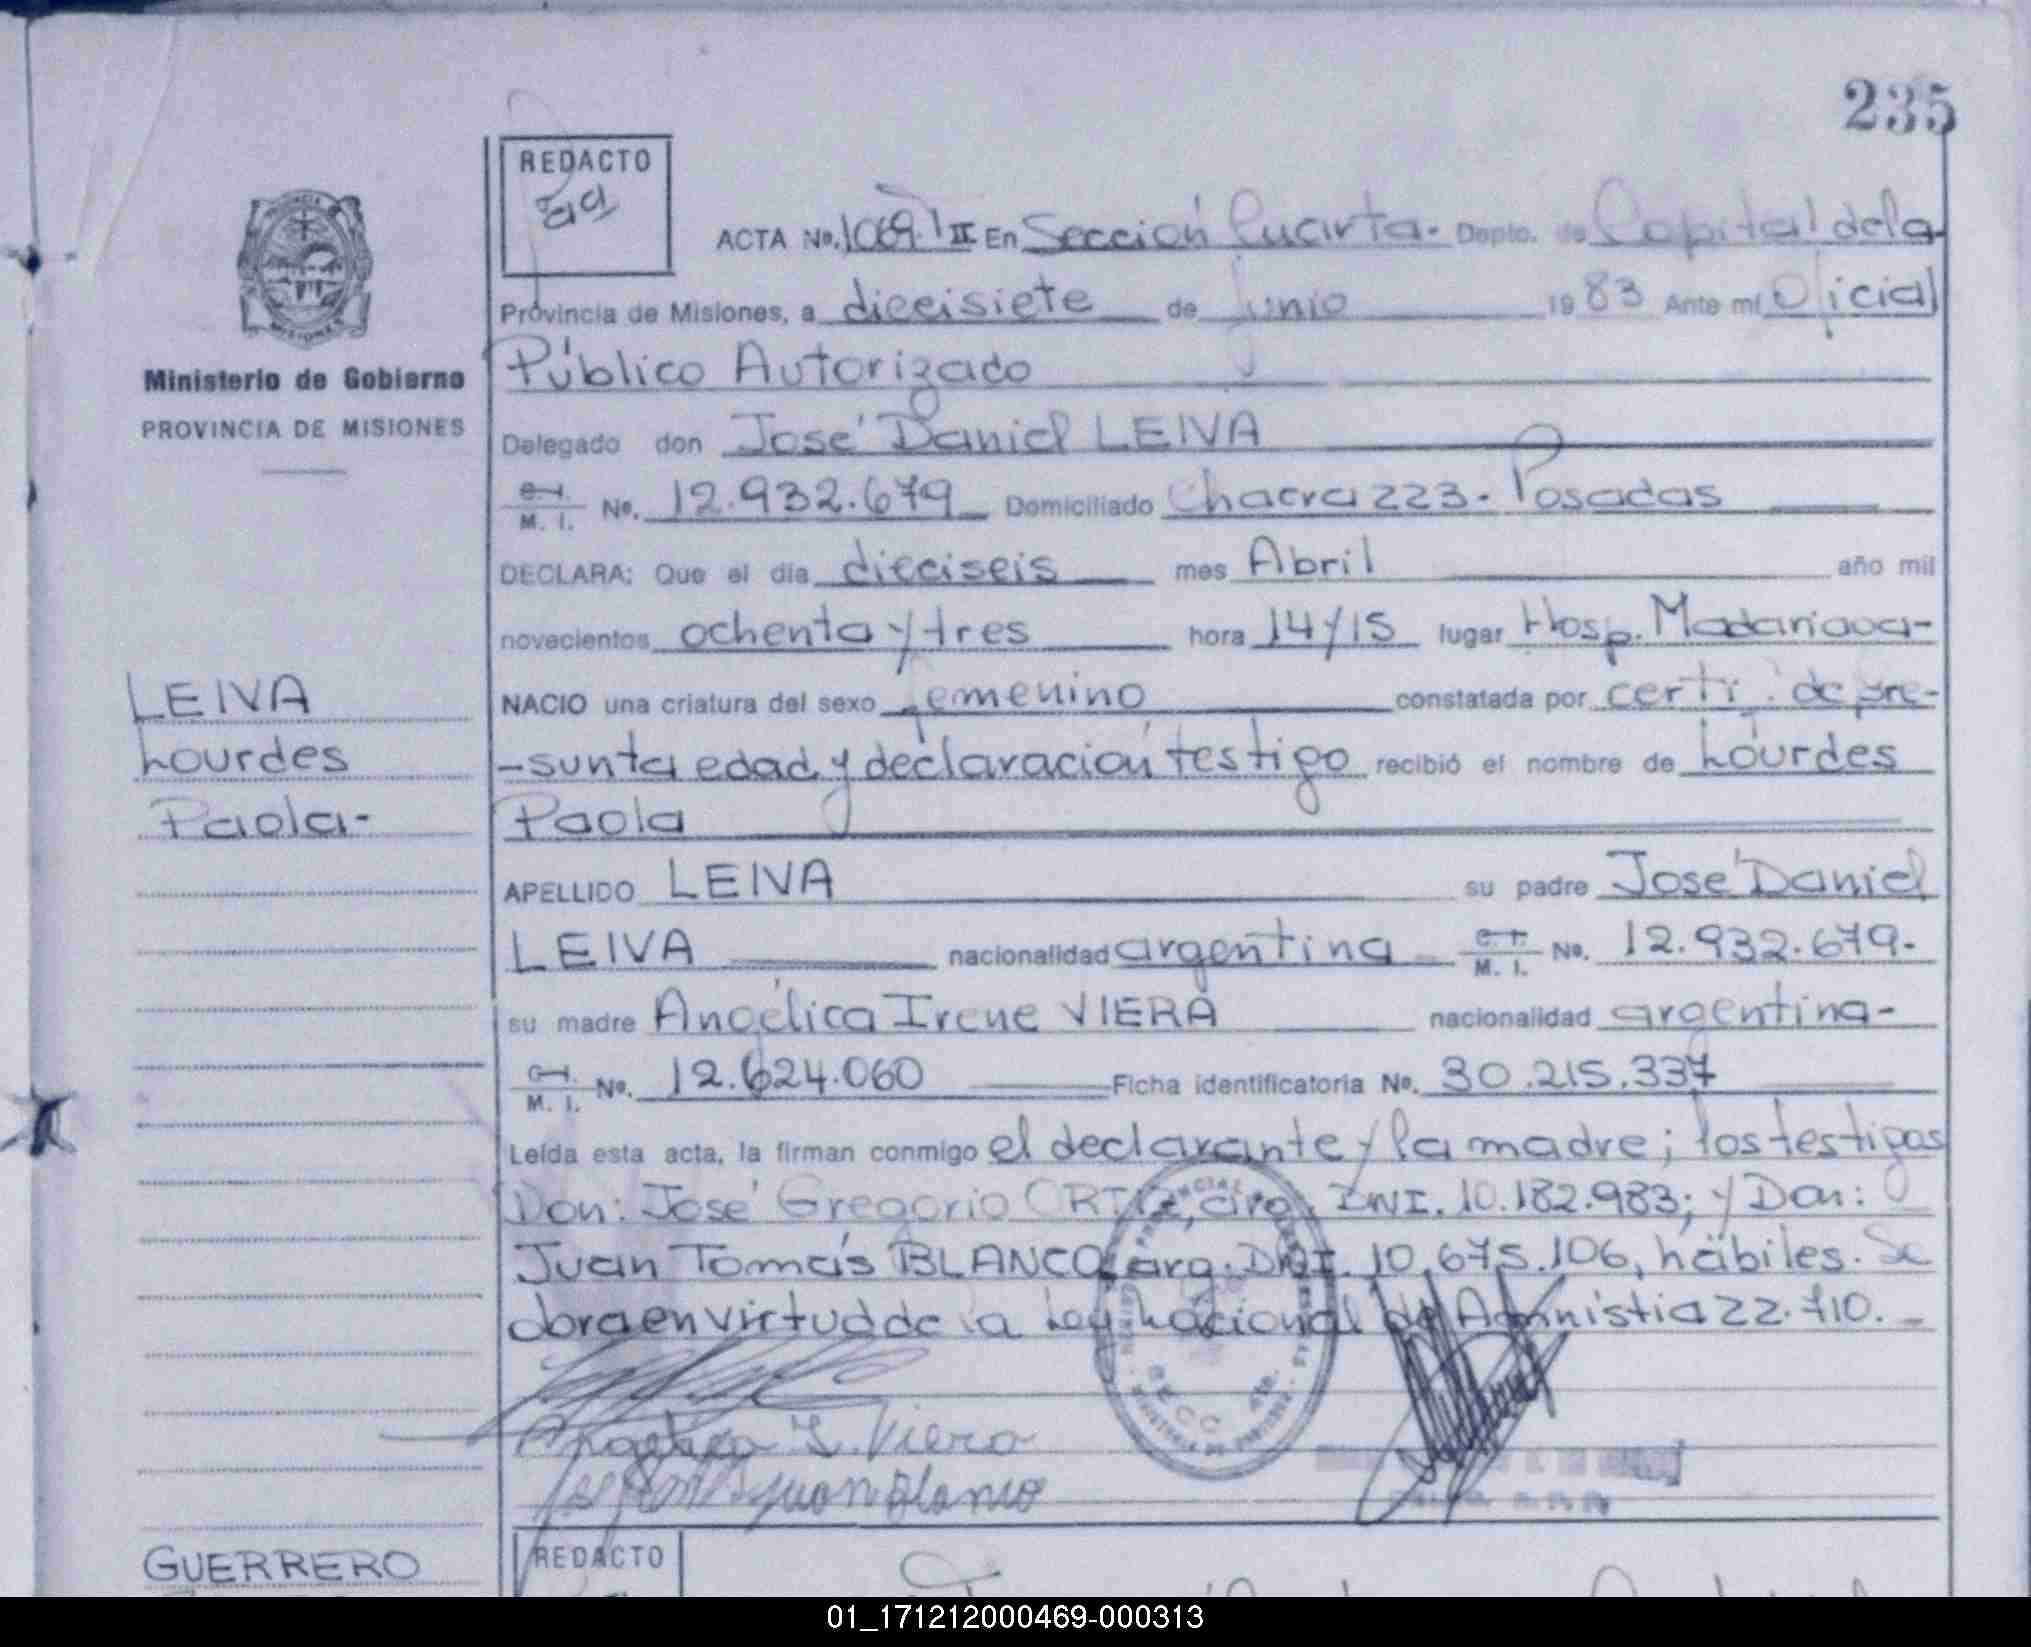 235
REDACTO
ACTA No. 1069. II En Sección Cuarta. Depto. de Capital de la
Provincia de Misiones, a diecisiete de junio 1983 Ante mí Oficial
Público Autorizado
Ministerio de Gobierno
PROVINCIA DE MISIONES
Delegado don José Daniel LEIVA
C.I. M. I. No. 12.932.679 Domiciliado Chacra 223. Posadas
DECLARA: Que el día dieciseis mes Abril año mil
novecientos ochenta y tres hora 14 y 15 lugar Hosp. Madariaga-
NACIO una criatura del sexo femenino constatada por certi. de pre-
-sunta edad y declaración testigo recibió el nombre de Lourdes
Paola
LEIVA
Lourdes
Paola-
APELLIDO LEIVA su padre José Daniel
LEIVA nacionalidad argentina C.I. M. I. No. 12.932.679.
su madre Angélica Irene VIERA nacionalidad argentina-
C.I. M. I. No. 12.624.060 Ficha identificatoria No. 30.215.337
Leída esta acta, la firman conmigo el declarante y la madre; los testigos
Don: José Gregorio ORTIZ, arg. DNI. 10.182.983; y Don:
Juan Tomás BLANCO arg. DNI. 10.675.106, hábiles. Se
labra en virtud de la Ley Nacional de Amnistia 22.710.
Angélica I. Viera
Juan Blanco
GUERRERO
REDACTO
01_171212000469-000313